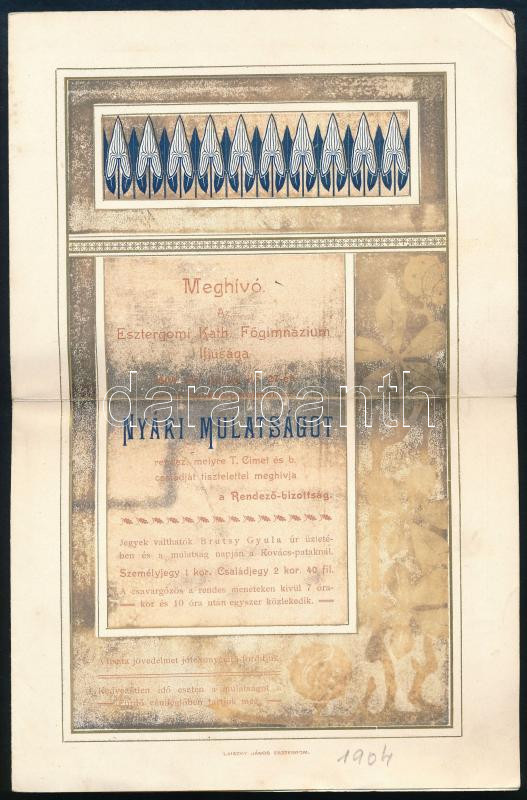 Meghívó.
Az
Esztergomi Kath. Főgimnázium
Ifjúsága
darabanth
NYÁRI MULATSÁGOT
rendez, melyre T. Címet és b.
családját tisztelettel meghívja
a Rendező-bizottság.
Jegyek válthatók Brutsy Gyula úr üzleté-
ben és a mulatság napján a Kovács-pataknál.
Személyjegy 1 kor. Családjegy 2 kor. 40 fil.
A csavargőzös a rendes meneteken kívül 7 óra-
kor és 10 óra után egyszer közlekedik.
A tiszta jövedelmet jótékonyczélra fordítjuk.
Kedvezőtlen idő esetén a mulatságot a
tartjuk meg.
LAISZKY JÁNOS ESZTERGOM.
1904